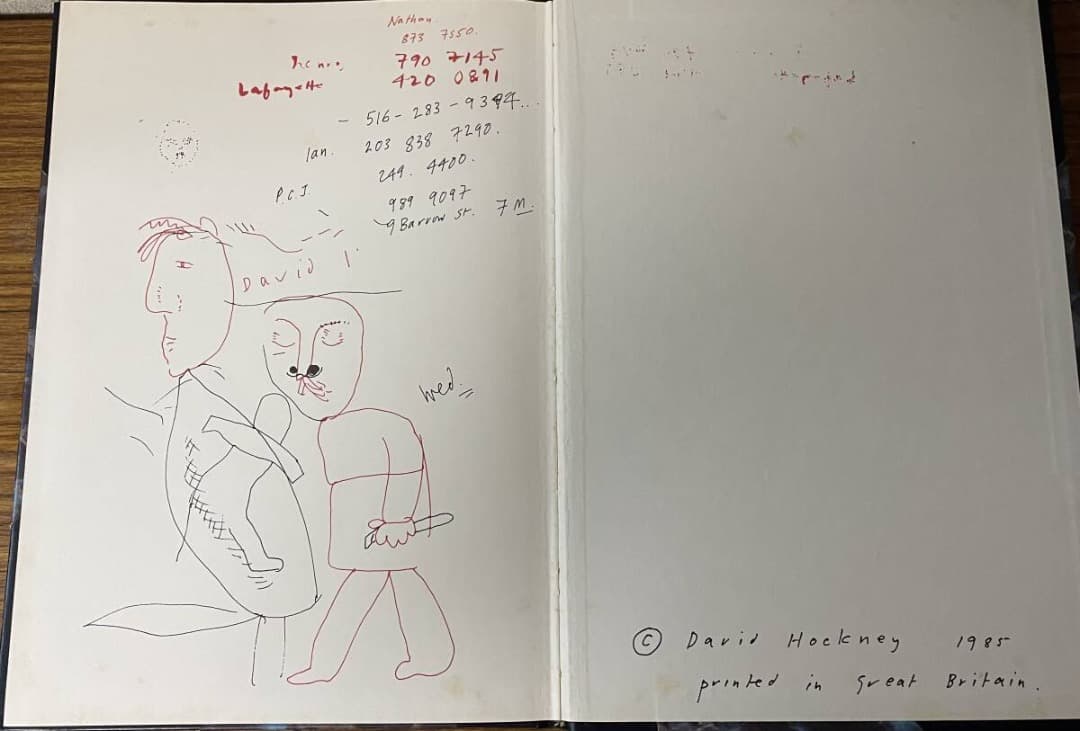 Nathan.
873 7550.
790 7145
Lafayette 420 0891
- 516-283-9394...
Ian. 203 838 7290.
249. 4400.
P.C.J.
989 9097
9 Barrow St. 7 M.
David
Wed.
© David Hockney 1985
printed in Great Britain.